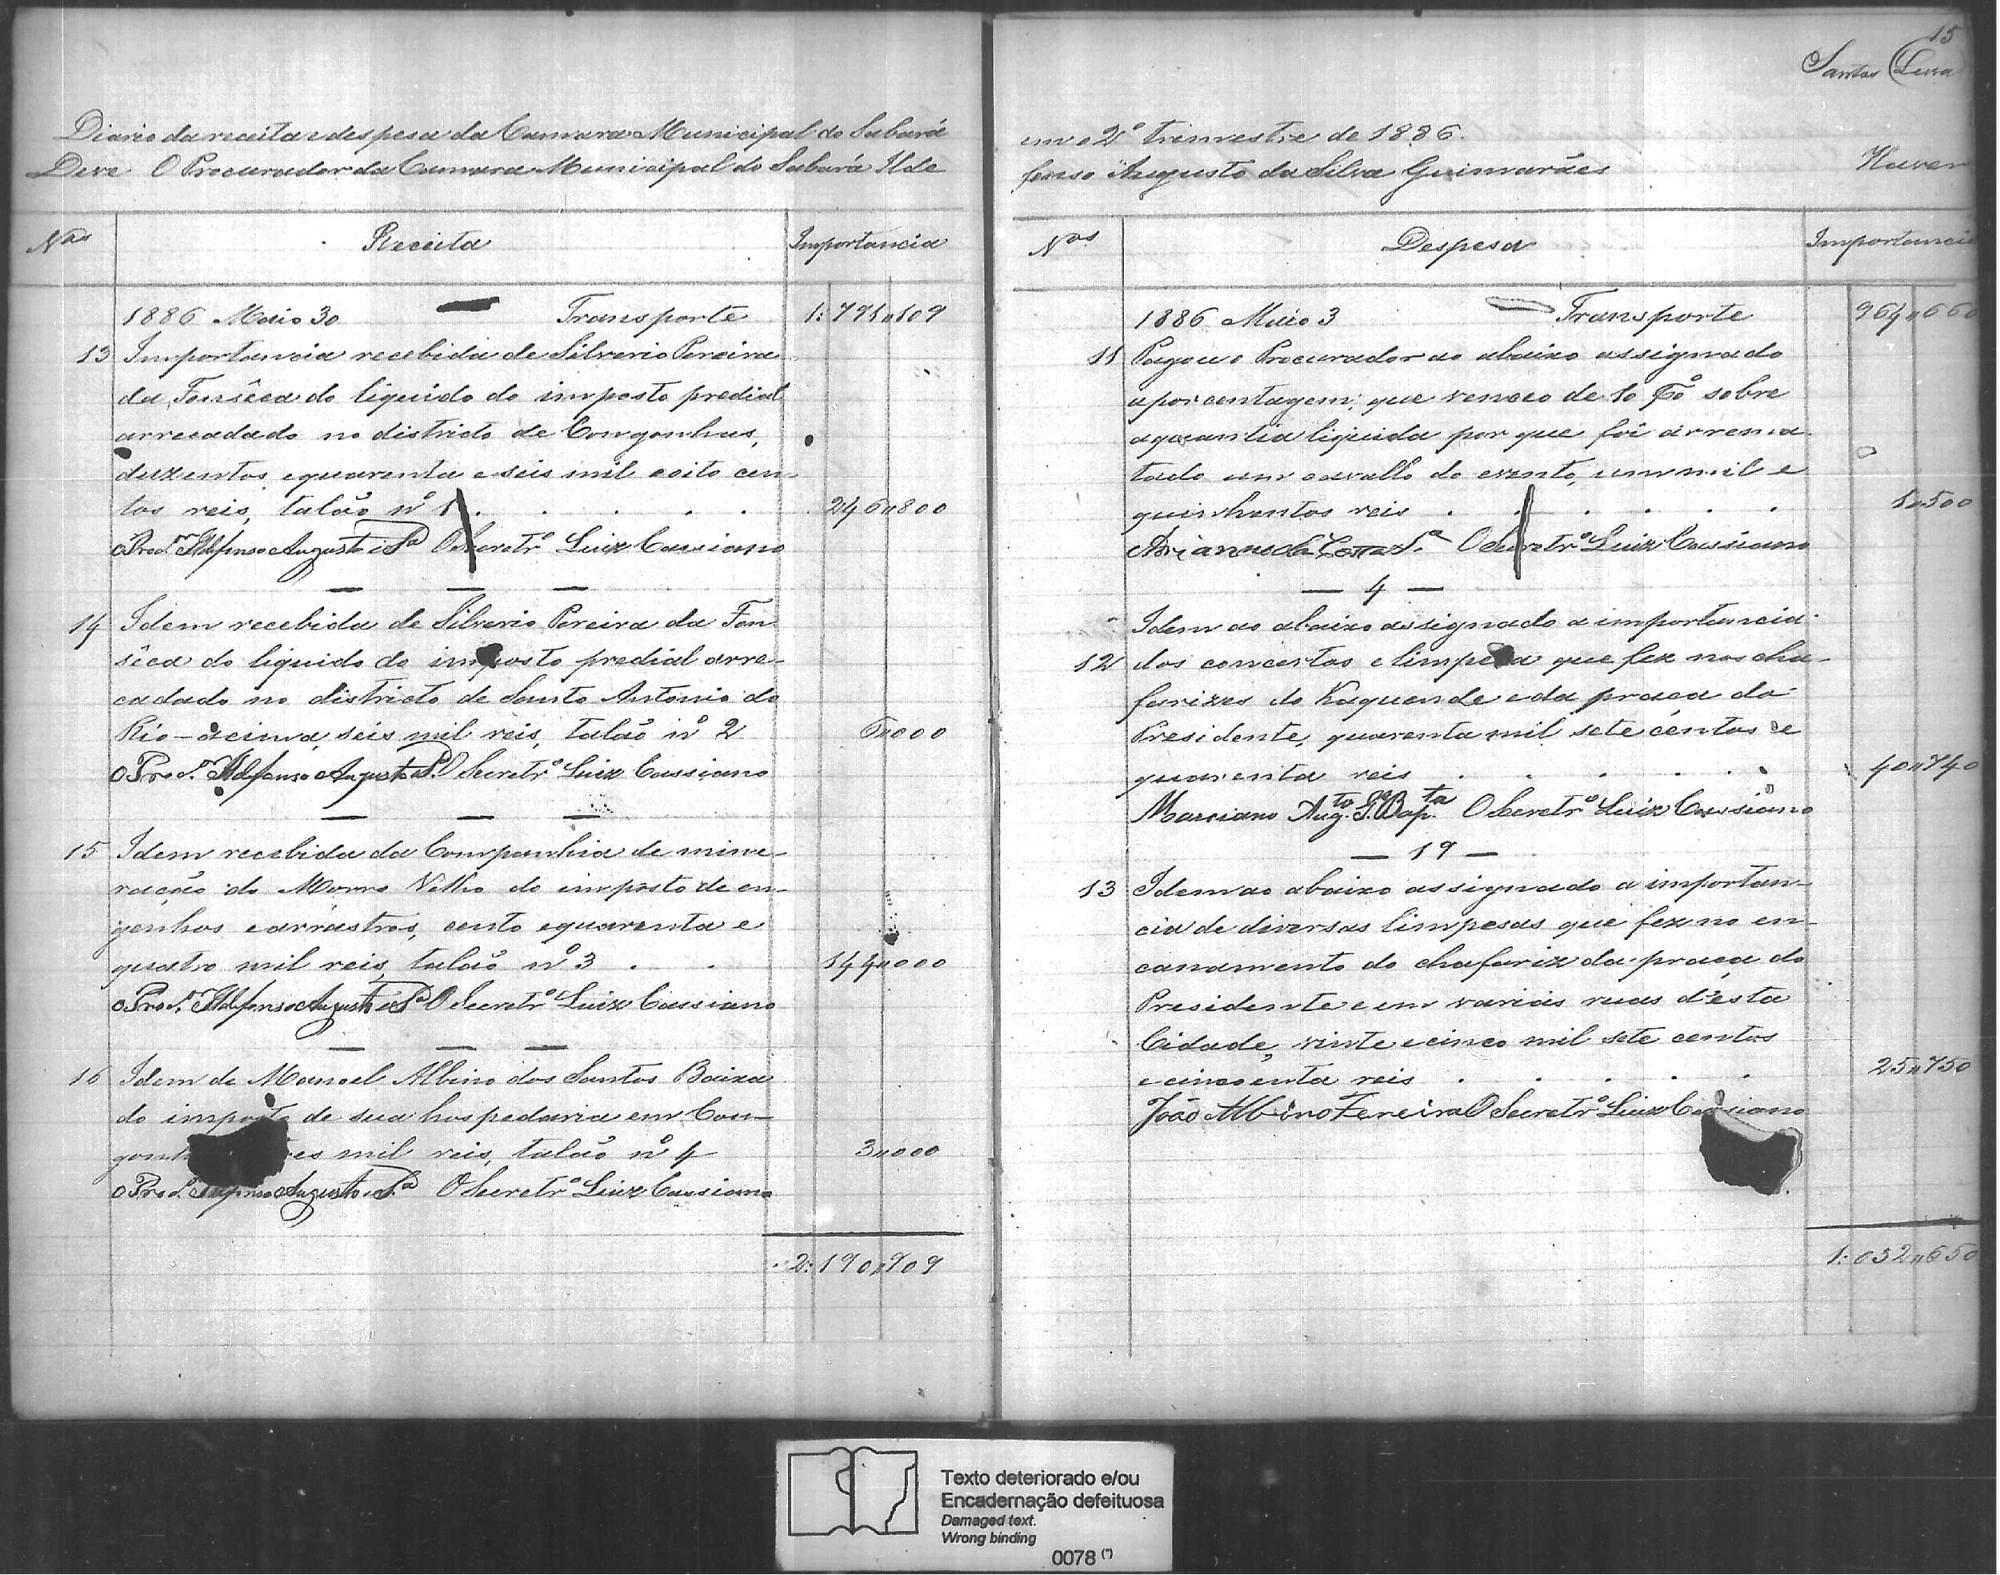 Diario da receita e despesa da Camara Municipal do Sabará
Deve O Procurador da Camara Municipal do Sabará Ilde
Nos Receita Importancia
1886 Maio 30 Transporte 1:791"109
13 Importancia recebida de Silverio Pereira
da Fonsêca do liquido do imposto predial
arrecadado no districto de Congonhas,
duzentos e quarenta e seis mil e oito cen
tos reis, talão nº 1 . . . . . 246"800
O Procor Ildefonso Augusto da Sª O Secretrº Luiz Cassiano
14 Idem recebida de Silverio Pereira da Fon
sêca do liquido do imposto predial arre-
cadado no districto de Santo Antonio do
Rio-acima, seis mil reis, talão nº 2 6"000
O Procor Ildefonso Augusto da Sª O Secretrº Luiz Cassiano
15 Idem recebida da Companhia de mine-
ração do Morro Velho do imposto de en-
genhos e arrastros, cento e quarenta e
quatro mil reis, talão nº 3 . . 144"000
O Procor Ildefonso Augusto da Sª O Secretrº Luiz Cassiano
16 Idem de Manoel Albino dos Santos Baixa
do imposto de sua hospedaria em Con-
mil reis, talão nº 4 3"000
O Procor Ildefonso Augusto da Sª O Secretrº Luiz Cassiano
2:190"909
15
Santos
em o 2º trimestre de 1886.
fonso Augusto da Silva Guimarães Haver
Nos Despesa Importancia
1886 Maio 3 Transporte 964"660
11 Pagou o Procurador ao abaixo assignado
a porcentagem, que venceo de 10 % sobre
a quantia liquida por que foi arrema
tado um cavallo do evento, um mil e
quinhentos reis . . . . . . 1"500
O Secretrº Luiz Cassiano
— 4 —
Idem ao abaixo assignado a importancia
12 dos concertos e limpesa que fez nos cha-
farizes do Kaquende e da praça do
Presidente, quarenta mil sete centos e
quarenta reis . . . . . 40"740
Marciano Augto G. Bapta O Secretrº Luiz Cassiano
— 19 —
13 Idem ao abaixo assignado a importan-
cia de diversas limpesas que fez no en-
canamento do chafariz da praça do
Presidente e em varias ruas d'esta
Cidade, vinte e cinco mil sete centos
e cincoenta reis . . . . . 25"750
João Albino Fereira O Secretrº Luiz Cassiano
1:032"650
Texto deteriorado e/ou
Encadernação defeituosa
Damaged text.
Wrong binding
0078 (*)